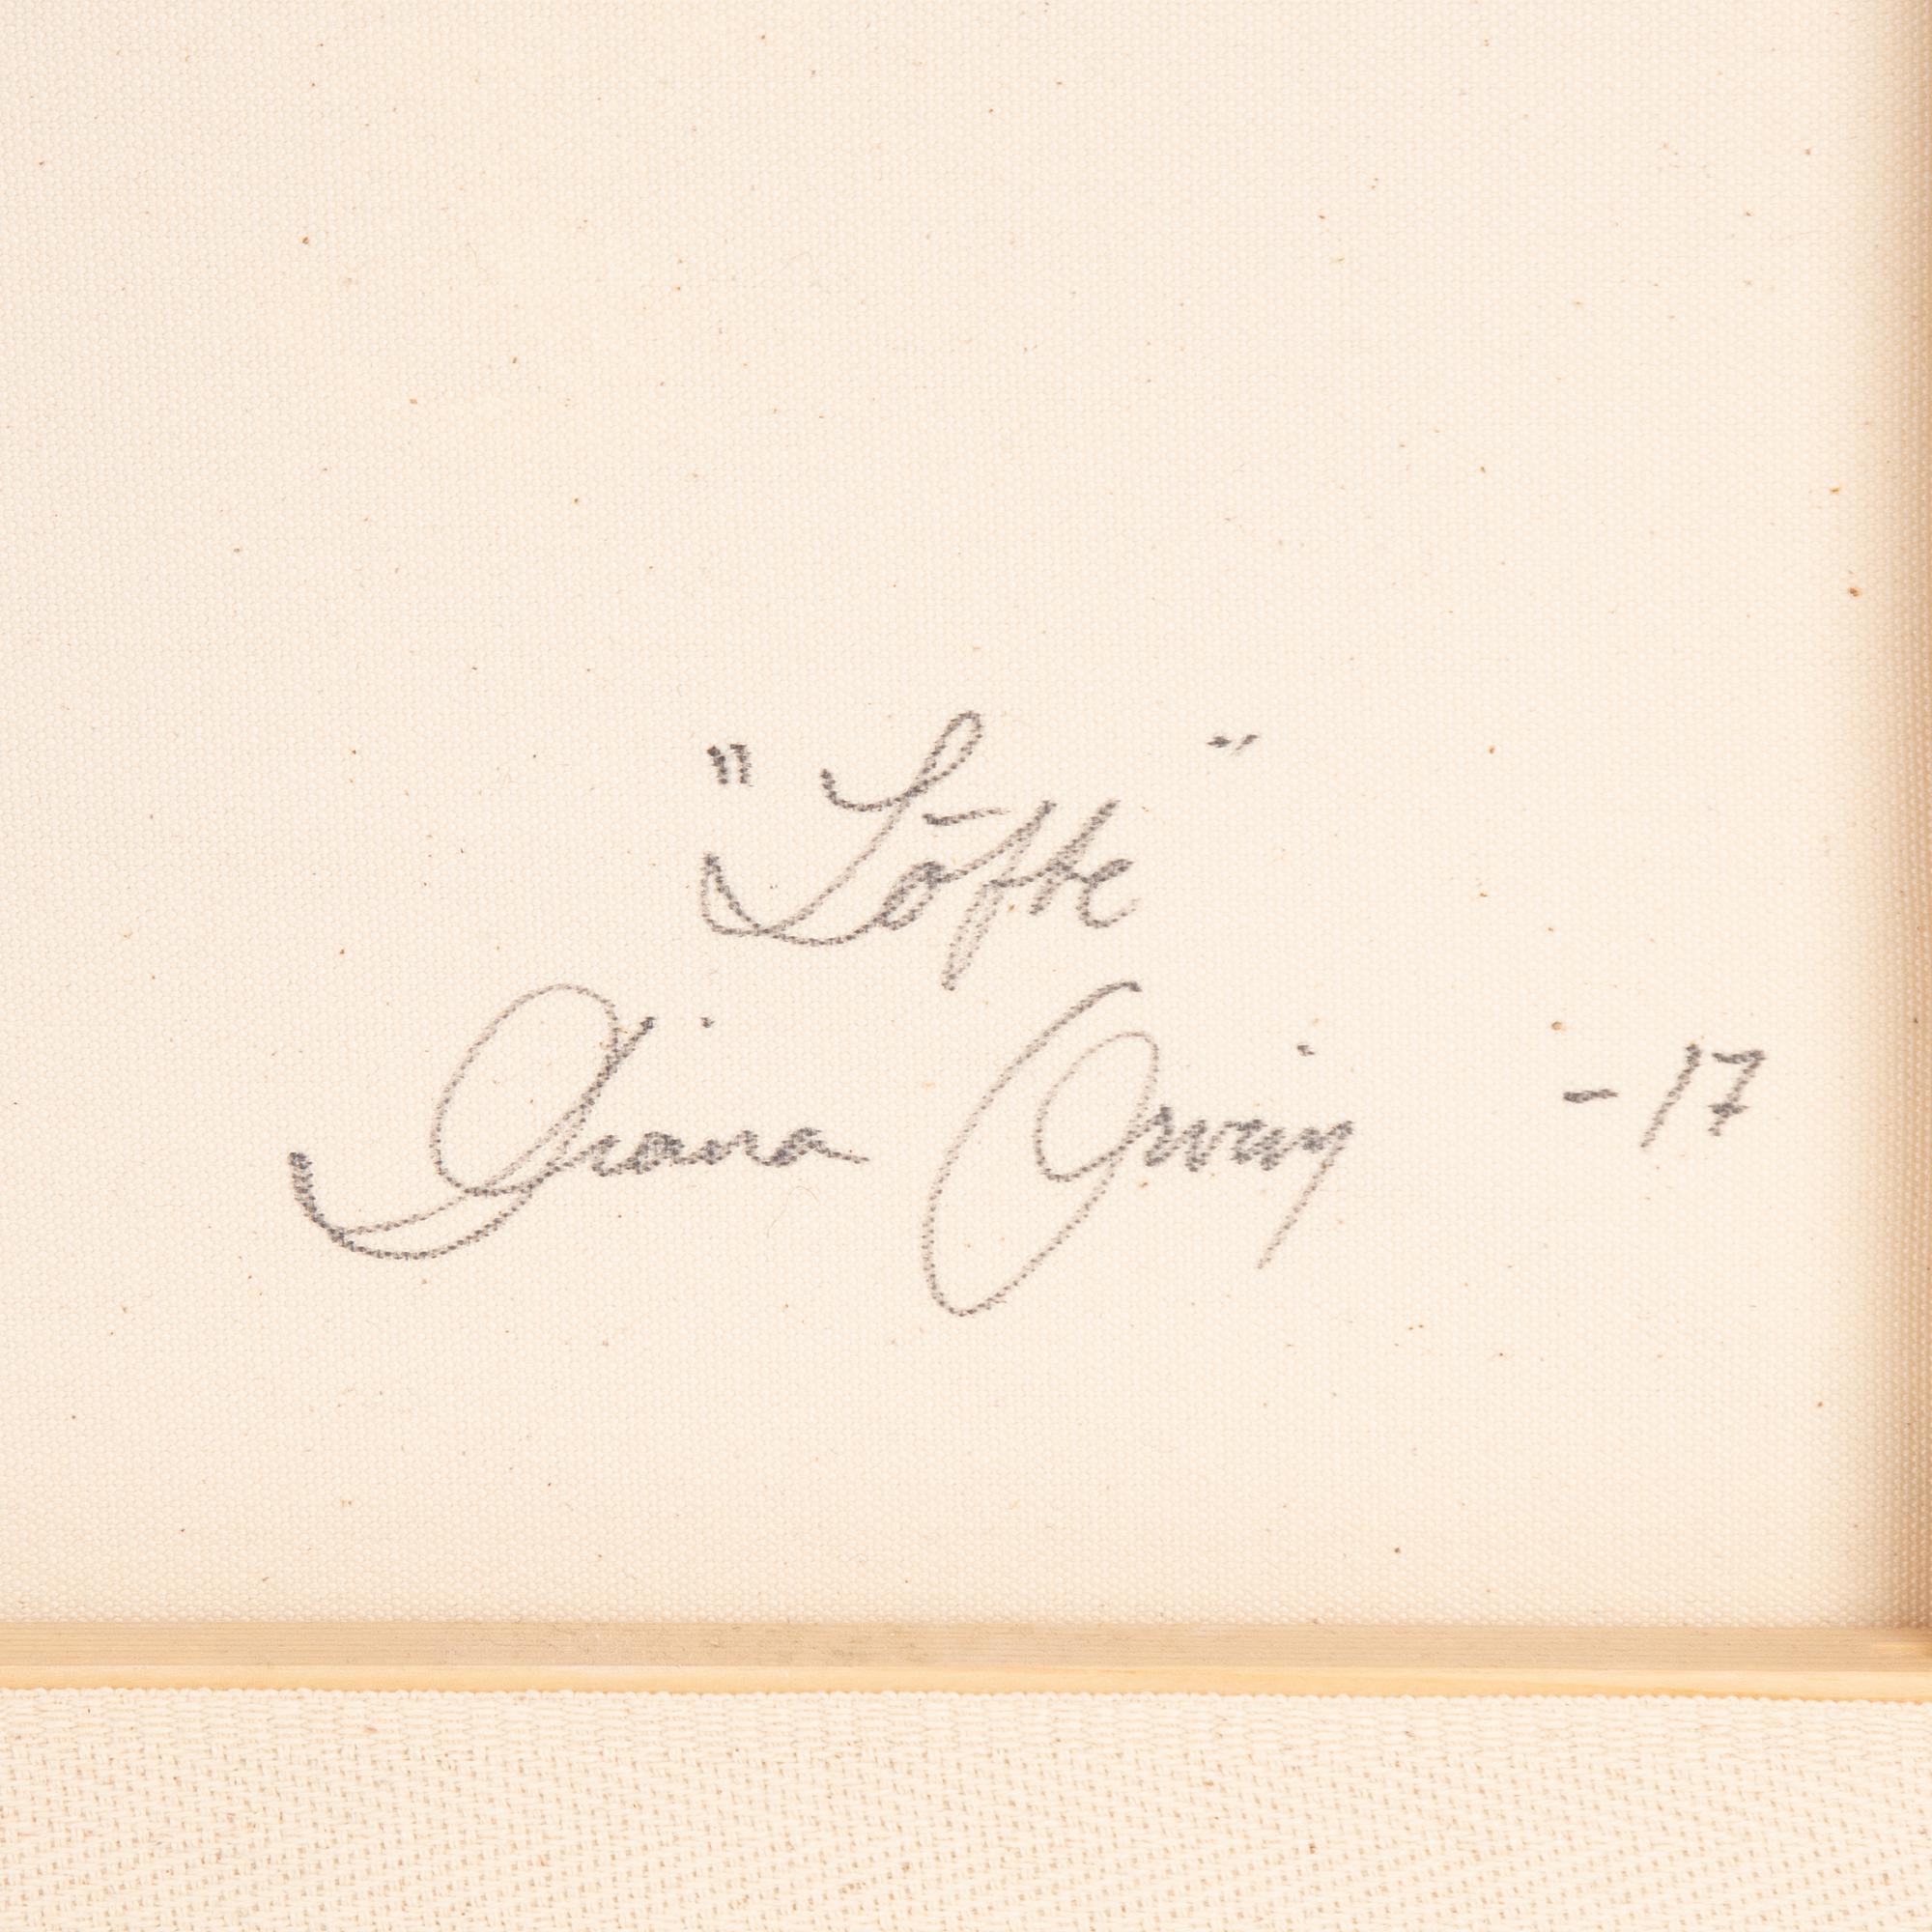 "Löfte"
Diana Orving -17